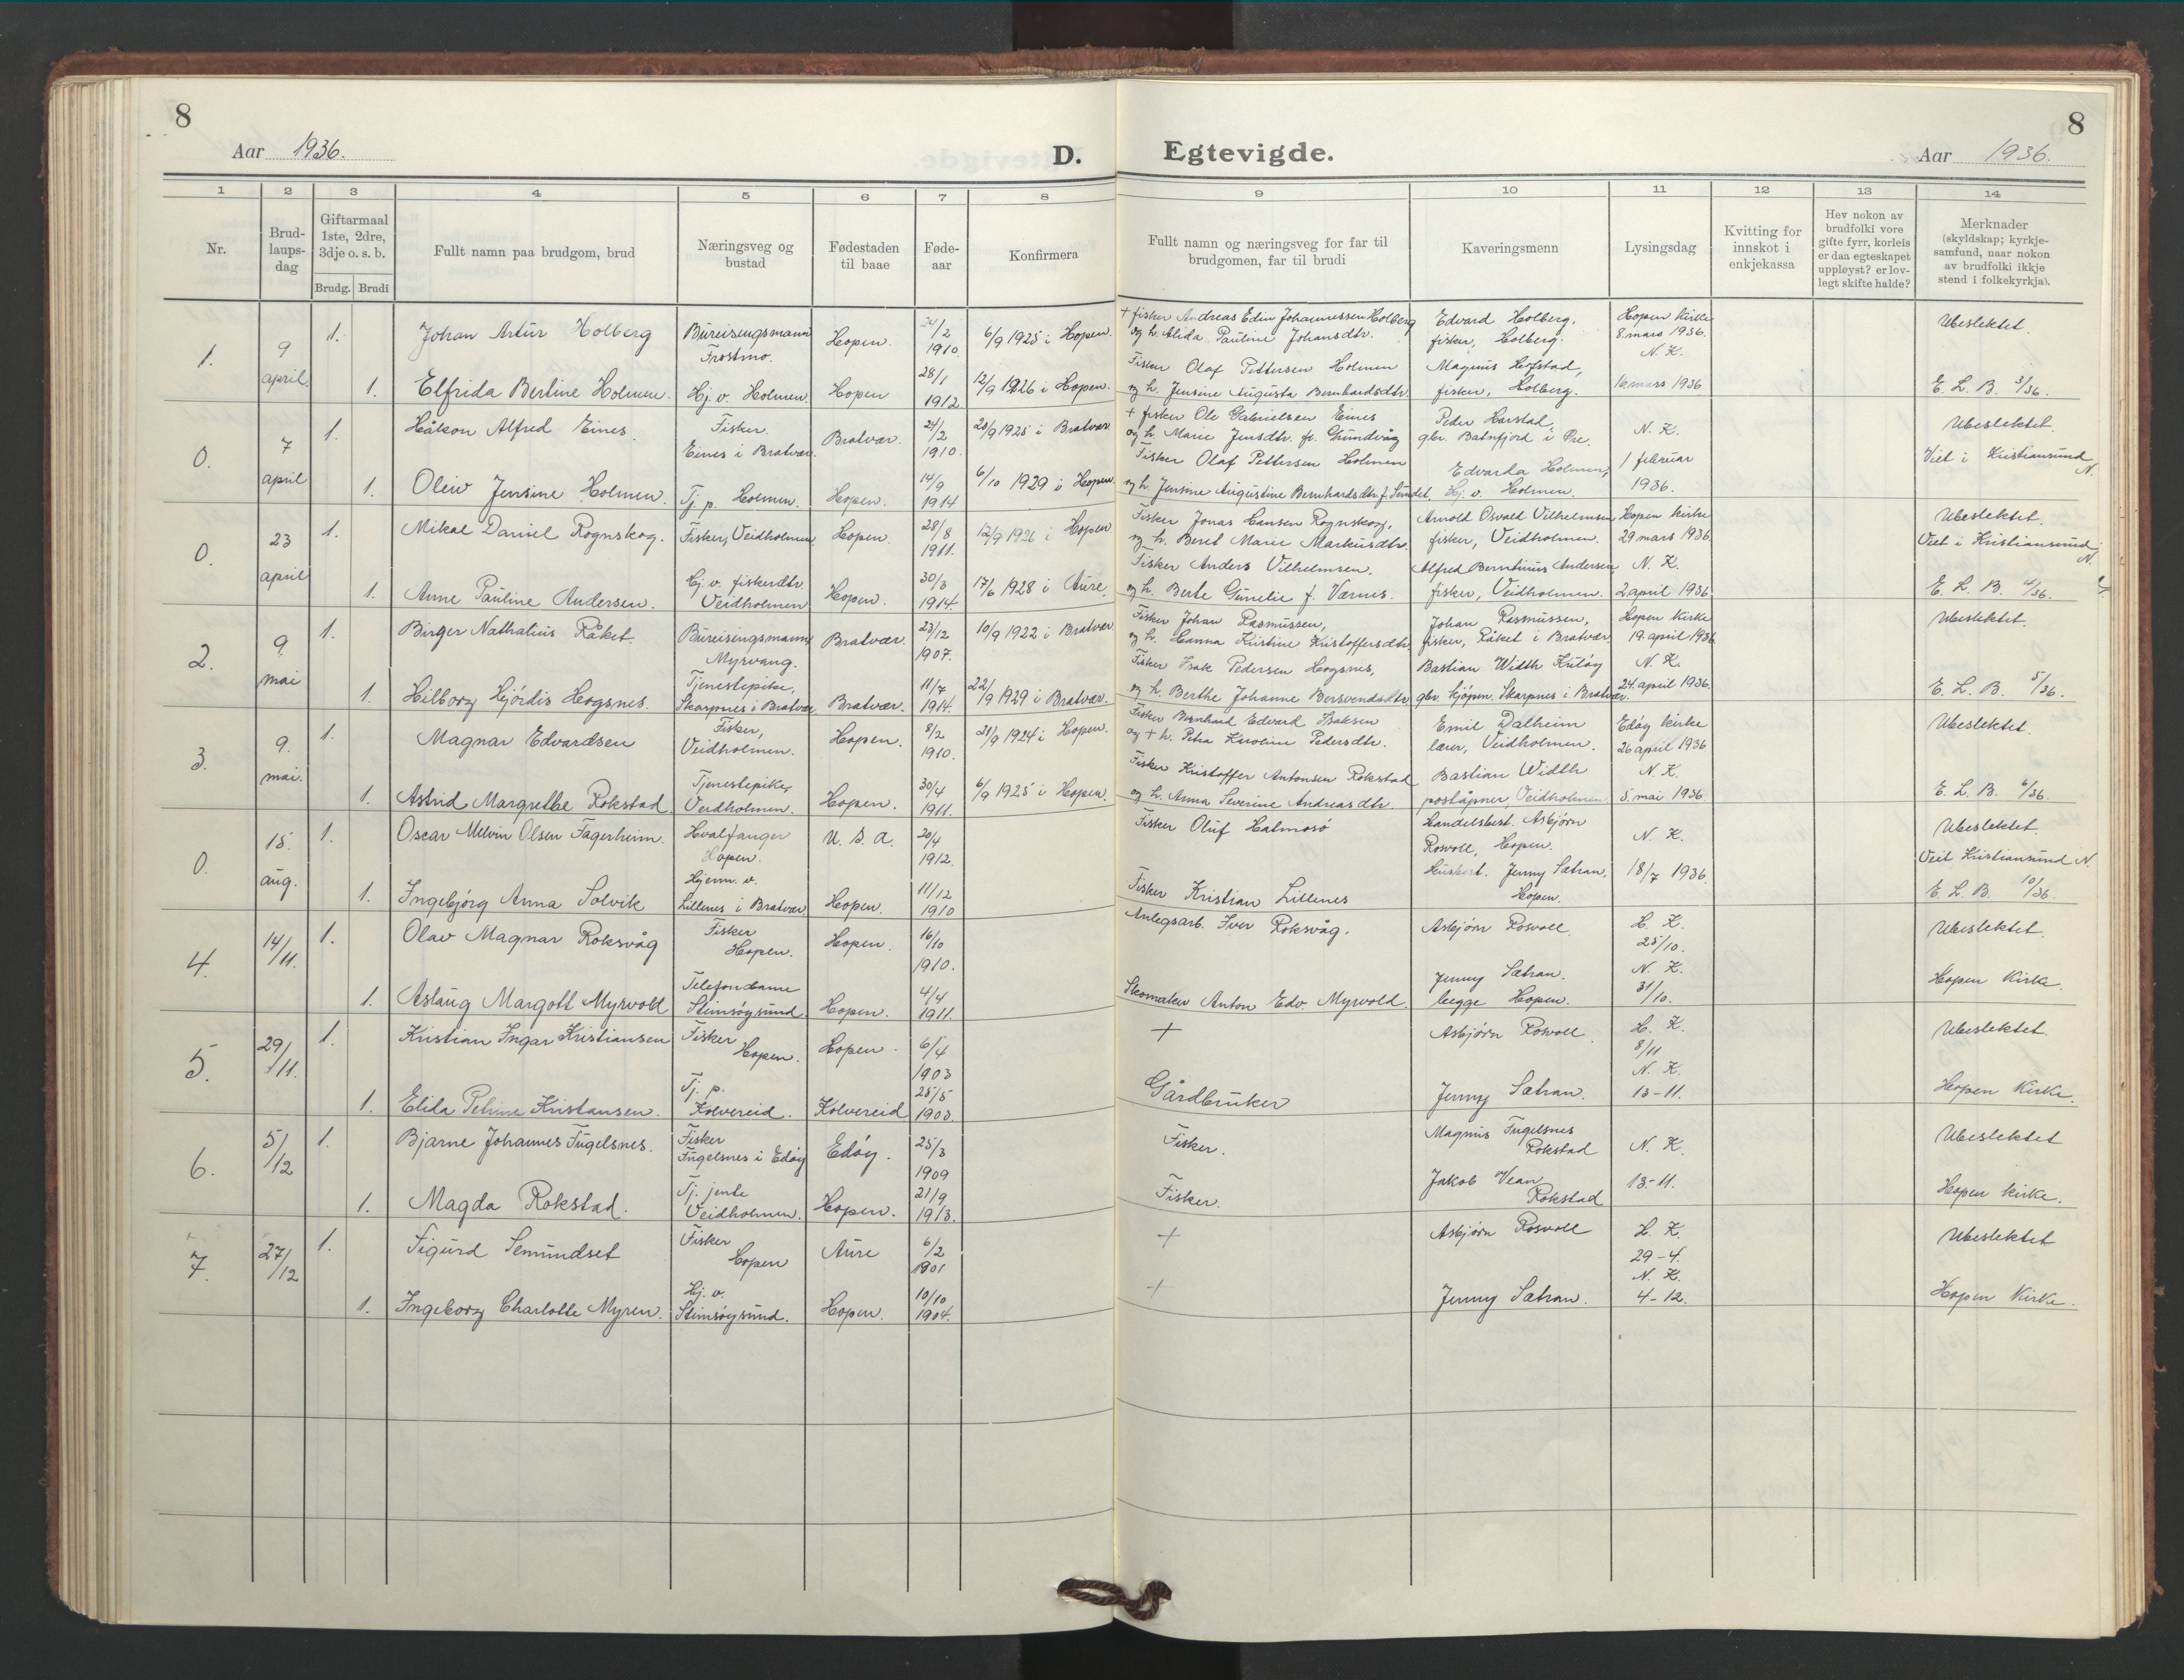 8
8
Aar 1936.
D.
Egtevigde.
Aar 1936.
1 2 3 4 5 6 7 8 9 10 11 12 13 14
Nr.
Brud-
laups-
dag
Giftarmaal
1ste, 2dre,
3dje o. s. b.
Brudg. Brudi
Fullt namn paa brudgom, brud
Næringsveg og
bustad
Fødestaden
til baae
Føde-
aar
Konfirmera
Fullt namn og næringsveg for far til
brudgomen, far til brudi
Kaveringsmenn
Lysingsdag
Kvitting for
innskot i
enkjekassa
Hev nokon av
brudfolki vore
gifte fyrr, korleis
er daa egteskapet
uppløyst? er lov-
legt skifte halde?
Merknader
(skyldskap; kyrkje-
samfund, naar nokon
av brudfolki ikkje
stend i folkekyrkja).
1.
9
april.
1.
Johan Artur Holberg
Bureisingsmann
Frostmo.
Hopen.
/2
1910.
6/9 1925 i Hopen.
+ fisker Andreas Edin Johannessen Holberg
og h. Alida Pauline Johansdtr.
Edvard Holberg,
fisker, Holberg.
Hopen kirke
8 mars 1936.
N. K.
Ubeslektet.
1.
Elfrida Berline Holmen.
Hj. v. Holmen.
Hopen
28/1
1912
12/9 1926 i Hopen.
Fisker Olaf Pettersen Holmen
og h. Jensine Augusta Bernhardsdtr.
Magnus Hofstad,
fisker, Holberg.
16 mars 1936
E. L. B. 3/36.
0.
7
april
1.
Håkon Alfred Eines.
Fisker.
Eines i Bratvær.
Bratvær.
24/2
1910.
20/9 1925 i Bratvær.
+ fisker Ole Gabrielsen Eines
og h. Marie Jensdtr. f. Grundvåg
Peder Harstad,
gbr. Batnfjord i Øre.
N. K.
Ubeslektet.
Viet i Kristiansund N.
1.
Oleiv Jensine Holmen.
Tj. p. Holmen.
Hopen.
14/9
1914
6/10 1929 i Hopen.
Fisker Olaf Pettersen Holmen
og h. Jensine Augustine Bernhardsdtr. f. Sundet.
Edvarda Holmen,
Hj. v. Holmen.
1 februar
1936.
0.
23
april
1.
Mikal Daniel Rognskog.
Fisker, Veidholmen
Hopen.
28/8
1911.
12/9 1926 i Hopen
Fisker Jonas Hansen Rognskog,
og h. Beret Marie Markusdtr.
Arnold Osvald Vilhelmsen,
fisker, Veidholmen.
Hopen kirke
29 mars 1936.
Ubeslektet.
Viet i Kristiansund N.
1.
Anne Pauline Andersen.
Hj. v. fiskerdtr.
Veidholmen
Hopen.
30/3
1914.
17/6 1928 i Aure.
Fisker Anders Vilhelmsen,
og h. Berte Gunelie f.Værnes.
Alfred Berntinius Andersen,
fisker, Veidholmen.
N. K.
2 april 1936
E. L. B. 4/36.
2.
9.
mai
1.
Birger Nathalius Råket.
Bureisingsmann
Myrvang.
Bratvær.
23/12
1907.
10/9 1922 i Bratvær
Fisker Johan Rasmussen,
og h. Hanna Kristine Kristoffersdtr.
Johan Rasmussen,
fisker, Råket i Bratvær.
Hopen kirke
19. april 1936
N. K.
Ubeslektet.
1.
Hilborg Hjördis Hogsnes.
Tjenestepike,
Skarpnes i Bratvær
Bratvær.
11/7
1914.
22/9 1929 i Bratvær.
Fisker Isak Pedersen Hogsnes,
og h. Berthe Johanne Bersvendsdtr.
Bastian Width Kuløy
gbr. kjøpm. Skarpnes i Bratvær.
24. april 1936.
E. L. B. 5/36.
3.
9.
mai.
1.
Magnar Edvardsen
Fisker,
Veidholmen.
Hopen.
8/2
1910.
21/9 1924 i Hopen.
Fisker Bernhard Edvard Isaksen
og + h. Petra Karoline Pedersdtr.
Emil Dalheim
lærer, Veidholmen.
Edøy kirke
26 april 1936
N. K.
Ubeslektet.
1.
Astrid Margrethe Rokstad
Tjenestepike,
Veidholmen.
Hopen.
30/4
1911.
6/9 1925 i Hopen.
Fisker Kristoffer Antonsen Rokstad
og h. Anna Severine Andreasdtr.
Bastian Width
poståpner, Veidholmen
5. mai 1936.
E. L. B. 6/36.
0.
15.
aug.
1.
Oscar Melvin Olsen Fagerheim.
Hvalfanger
Hopen.
U. S. A.
20/4
1912.
Fisker Oluf Halmosö
Handelsbest. Asbjørn
Rosvoll, Hopen.
N. K.
Ubeslektet.
Viet Kristiansund N.
1.
Ingebjørg Anna Solvik
Hjemm. v.
Lillenes i Bratvær
Hopen.
11/12
1910
Fisker Kristian Lillenes
Husbest. Jenny Sætran,
Hopen.
18/7 1936.
E. L. B. 10/36.
4.
14/11.
1.
Olav Magnar Roksvåg
Fisker
Hopen.
Hopen.
16/10
1910.
Anlegsarb. Iver Roksvåg.
Asbjørn Rosvoll.
H. K.
25/10.
N. K.
Ubeslektet.
1.
Aslaug Margott Myrvold
Telefondame
Steinsøysund
Hopen.
4/4
1911.
Skomaker Anton Edv. Myrvold.
Jenny Sætran.
begge Hopen.
31/10.
Hopen Kirke.
5.
29/11.
1.
Kristian Ingar Kristiansen
Fisker
Hopen.
Hopen.
6/4
1903
+
Asbjørn Rosvoll.
H. K.
8/11
N. K.
Ubeslektet.
1.
Elida Petrine Kristansen.
Tj. p.
Kolvereid.
Kolvereid
25/5
1903
Gårdbruker
Jenny Sætran.
13-11.
Hopen Kirke.
6.
5/12
1.
Bjarne Johannes Fugelsnes.
Fisker
Fugelsnes i Edøy
Edøy.
25/3
1909
Fisker.
Magnus Fugelsnes
Rokstad
N. K.
Ubeslektet
1.
Magda Rokstad.
Tj. jente
Veidholmen.
Hopen.
21/9
1913.
Fisker.
Jakob Vean
Rokstad
13-11.
Hopen kirke.
7.
27/12
1.
Sigurd Semundset
Fisker
Hopen
Aure
6/2
1901
+
Asbjørn Rosvoll
H. K.
29-4.
N. K.
Ubeslektet
1.
Ingeborg Charlotte Myren.
Hj. v.
Steinsøysund.
Hopen.
10/10
1904.
+
Jenny Sætran.
4-12.
Hopen Kirke.